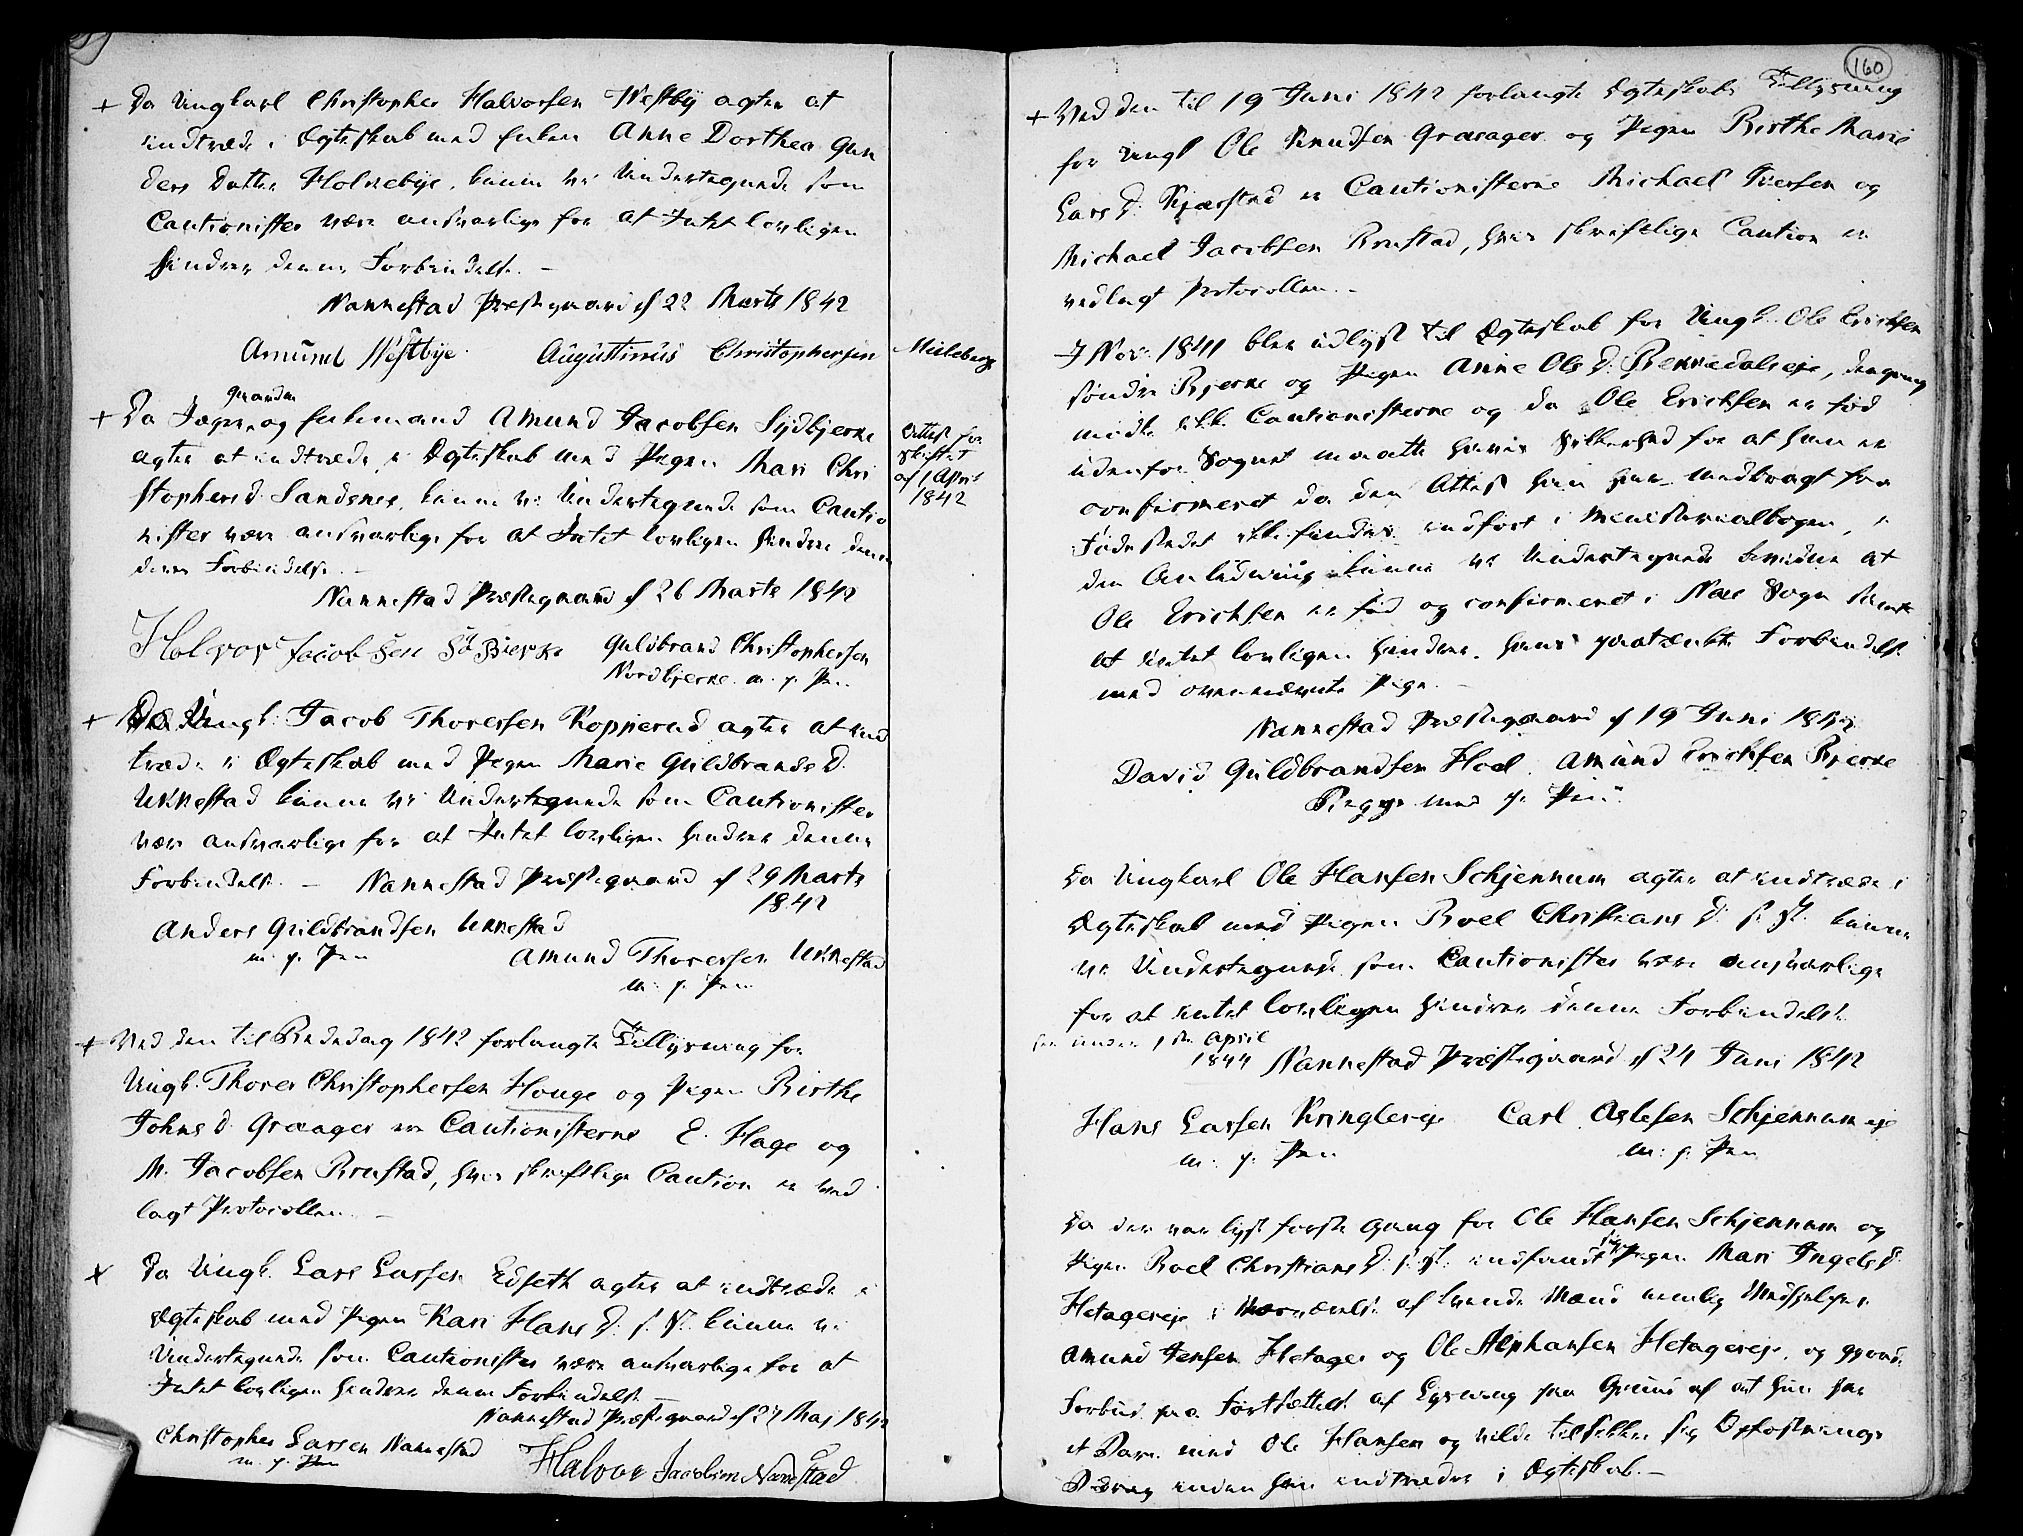 + Da Ungkarl Christopher Halvorsen Westby agter at
indtræde i Ægteskab med Enken Anne Dorthea Gun
ders Datter Holnebye, kunne vi Undertegnede som
Cautionister være ansvarlige for at Intet lovligen
hindrer denne Forbindelse. –
Nannestad Præstegaard d 22 Marts 1842
Amund Westbye. Augustinus Christophersen
Mieleberge
+ Da Jæger og Enkemand Amund Jacobsen Sydbjerke
agter at indtræde i Ægteskab med Pigen Mari Chri
stophersd. Sandsnes, kunne vi Undertegnede som Cautio
nister være ansvarlige for at Intet lovligen hindrer denne
deres Forbindelse. –
Attest for
Skiftet
af 1 April
1842
Nannestad Præstegaard d 26 Marts 1842
Halvor Jacobsen Guldbrand Christophersen
Nordbjerke m. p. Pen
+ Da Ungk. Jacob Thoresen Kopperud agter at ind
træde i Ægteskab med Pigen Marie Guldbrands D.
Ukkestad kunne vi Undertegnede som Cautionister
være ansvarlige for at Intet lovligen hindrer denne
Forbindelse. – Nannestad Præstegaard d 29 Marts
1842
Anders Guldbrandsen Ukkestad
m. p. Pen
Amund Thoresen Ukkestad
m. p. Pen
+ Ved den til Bededag 1842 forlangte Tillysning for
Ungk. Thorer Christophersen Houge og Pigen Birthe
Johns d. Græager ere Cautionisterne E. Hage og
M. Jacobsen Brustad, hvis skriftlige Caution er ved
lagt Protocollen. –
x Da Ungk. Lars Larsen Edseth agter at indtræde i
Ægteskab med Pigen Kari Hans D. s. St. kunne vi
Undertegnede som Cautionister være ansvarlige for at
Intet lovligen hindrer denne Forbindelse –
Nannestad Præstegaard d 27 Maj 1842
Christopher Larsen Nannestad
m. p. Pen
Halvor Jacobsen Nannestad
160
+ Ved den til 19 Juni 1842 forlangte Ægteskabs Tillysning
for Ungk Ole Knudsen Græager og Pigen Birthe Marie
Lars D. Kjærstad er Cautionisterne Michael Iversen og
Michael Jacobsen Brustad, hvis skriftlige Caution er
vedlagt Protocollen. –
I Nov. 1841 blev udlyst til Ægteskab for Ungk. Ole Erichsen
søndre Bjerke og Pigen Anne Ols D. , dengang
mødte ikke Cautionisterne og da Ole Erichsen er fød
udenfor Sognet maatte haves Sikkerhed for at han er
confirmeret da den Attest han har medbragt fra
Fødestedet ikke findes indført i Ministerialbogen, i
den Anledning kunne vi Undertegnede bevidne at
Ole Erichsen er fød og confirmeret i Næs Sogn samt
at intet lovligen hindrer hans paatænkte Forbindelse
med ovennævnte Pige. –
Nannestad Præstegaard d 19 Juni 1842
David Guldbrandsen Hoel. Amund Erichsen Bjerke
Begge med p. Pen.
Da Ungkarl Ole Hansen Schjennum agter at indtræde i
Ægteskab med Pigen Boel Christians D. s. St. kunne
vi Undertegnede som Cautionister være ansvarlige
for at intet lovligen hindrer denne Forbindelse.
under 1ste April
1844 Nannestad Præstegaard d 24 Juni 1842
Hans Larsen Kringlereje Carl Aslesen Schjennum eje
m. p. Pen m. p. Pen
Da der var lyst første Gang for Ole Hansen Schjennum og
Pigen Boel Christians D. s. St. indfandt sig Pigen Mari Ingels D.
Hetagereje i Nærværelse af tvende Mænd nemlig Medhjelper
Amund Jensen Hetager og Ole Alphansen Hetagereje, og gjorde
Forbud paa Fortsættelse af Lysning paa Grund af at hun har
et Barn med Ole Hansen og vilde tilsikkre sig Opfostrings
Bidrag inden han indtræder i Ægteskab. –